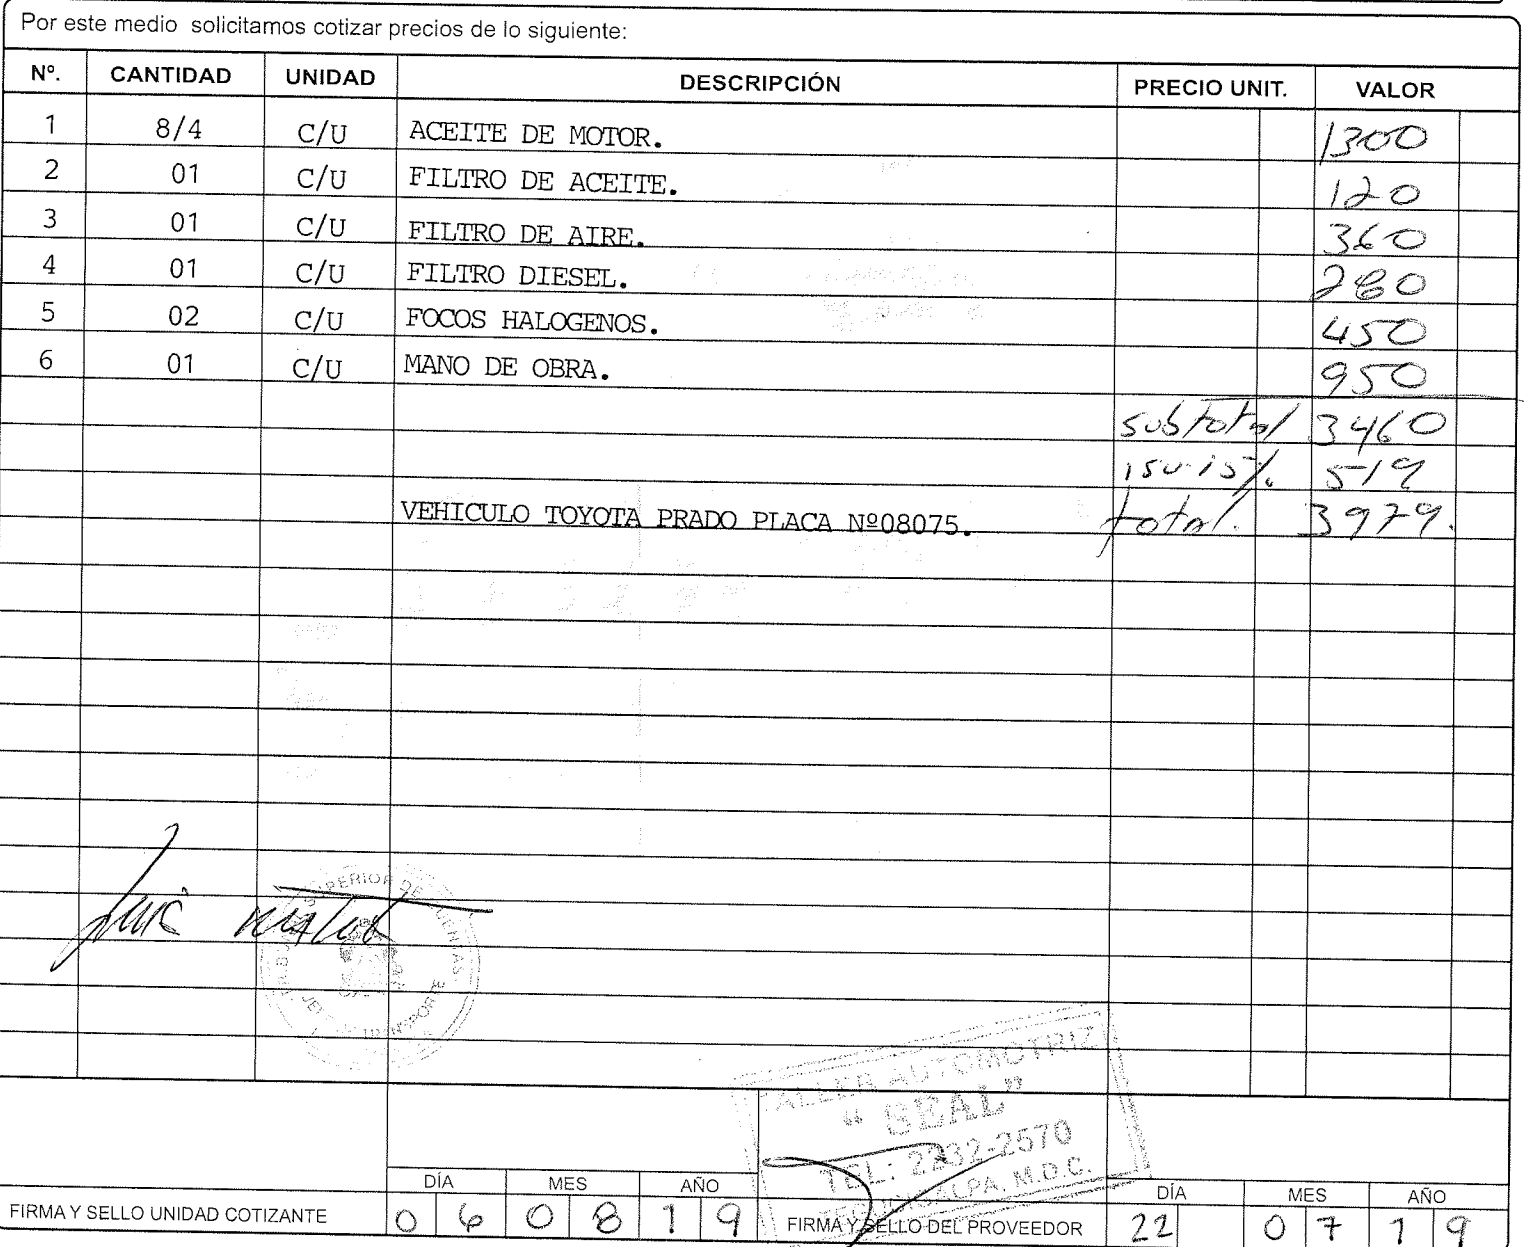 Por este medio solicitamos cotizar precios de lo siguiente:
Nº. CANTIDAD UNIDAD DESCRIPCIÓN PRECIO UNIT. VALOR
1 8/4 C/U ACEITE DE MOTOR. 1300
2 01 C/U FILTRO DE ACEITE. 120
3 01 C/U FILTRO DE AIRE. 360
4 01 C/U FILTRO DIESEL. 280
5 02 C/U FOCOS HALOGENOS. 450
6 01 C/U MANO DE OBRA. 950
subtotal 3460
isv. 15%. 519
VEHICULO TOYOTA PRADO PLACA Nº08075. total. 3979.
TRIBUNAL SUPERIOR DE CUENTAS
JEFE TRANSPORTE
TALLER AUTOMOTRIZ
TEL: 2232-2570
TEGUCIGALPA, M.D.C.
DÍA MES AÑO DÍA MES AÑO
FIRMA Y SELLO UNIDAD COTIZANTE 06 08 19 FIRMA Y SELLO DEL PROVEEDOR 22 07 19